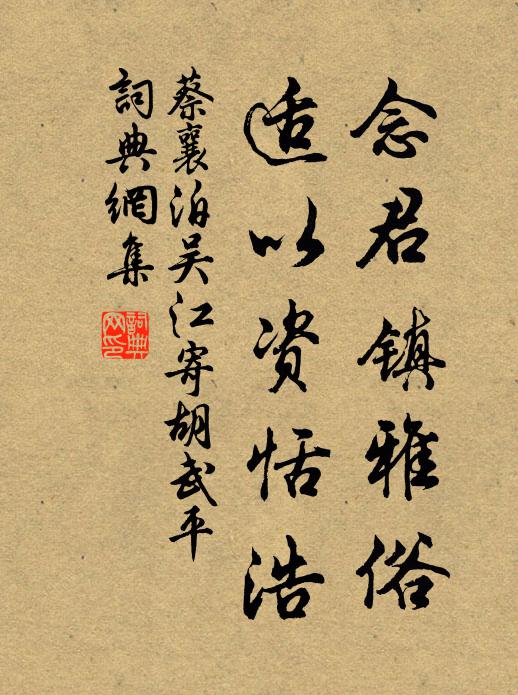 念君镇雅俗
适以资恬浩
蔡襄泊吴江寄胡武平
詞典網集
詞典
网印